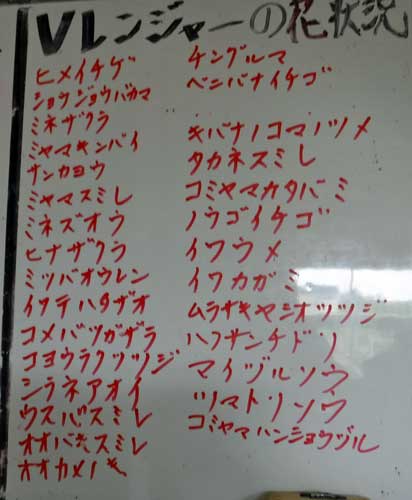 Vレンジャーの花状況
ヒメイチゲ
ショウジョウバカマ
ミネザクラ
ミヤマキンバイ
サンカヨウ
ミヤマスミレ
ミネズオウ
ヒナザクラ
ミツバオウレン
イワテハタザオ
コメバツガザクラ
コヨウラクツツジ
シラネアオイ
ウスバスミレ
オオバキスミレ
オオカメノキ
チングルマ
ベニバナイチゴ
キバナノコマノツメ
タカネスミレ
コミヤマカタバミ
ノウゴイチゴ
イワウメ
イワカガミ
ムラサキヤシオツツジ
ハクサンチドリ
マイヅルソウ
ツマトリソウ
コミヤマハンショウヅル